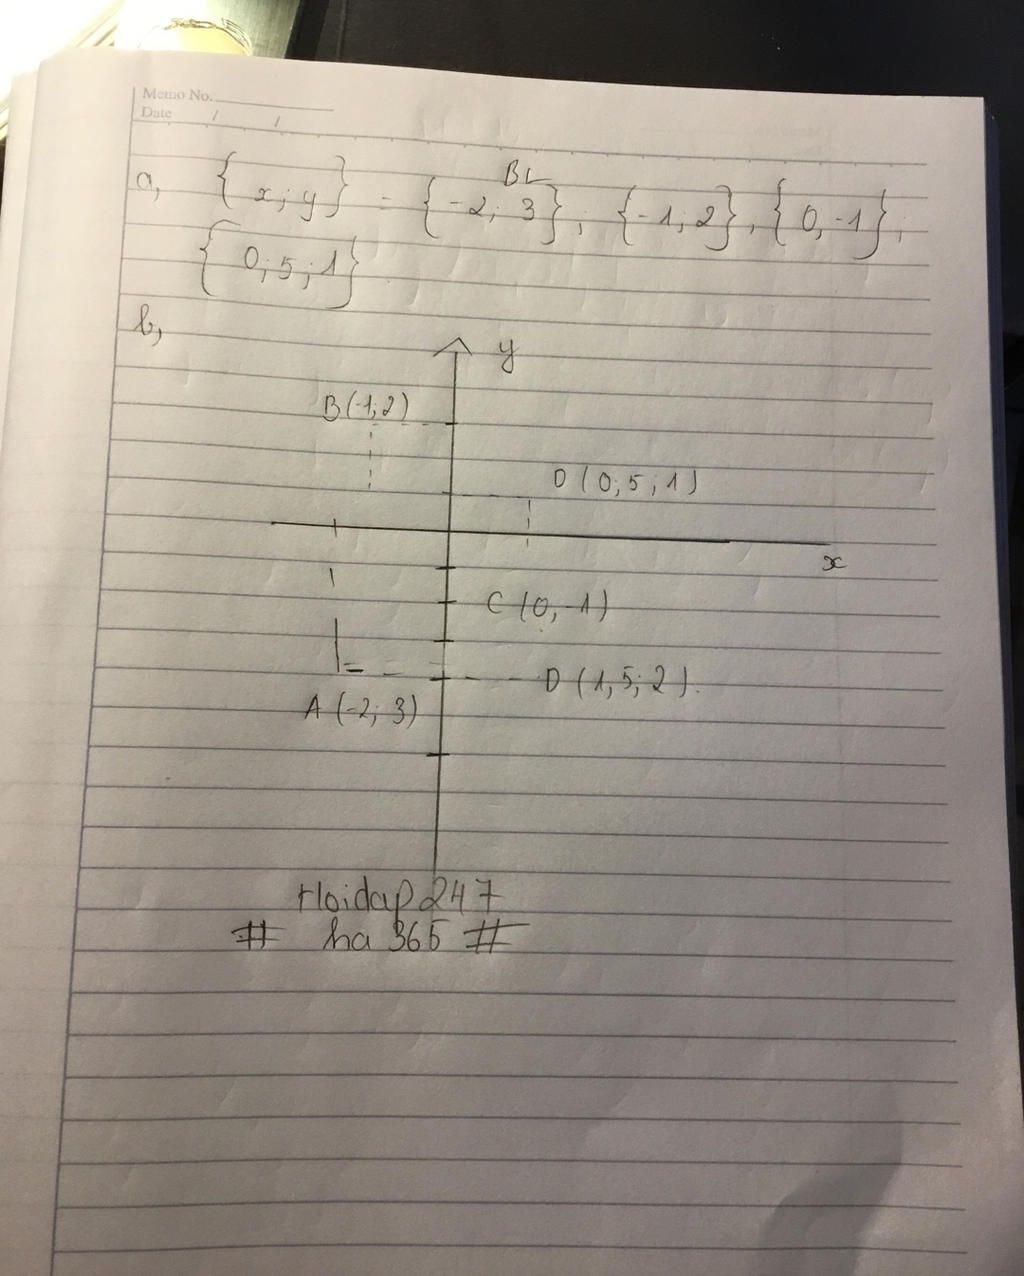 Memo No.
Date / /
BL
a, {x; y} = {-2; 3}; {-1; 2}, {0, -1};
{0; 5; 1}
b,
y
B(-1; 2)
D (0; 5; 1)
x
C (0, -1)
D (1, 5; 2).
A (-2; 3)
Hoidap 247
# ha 365 #